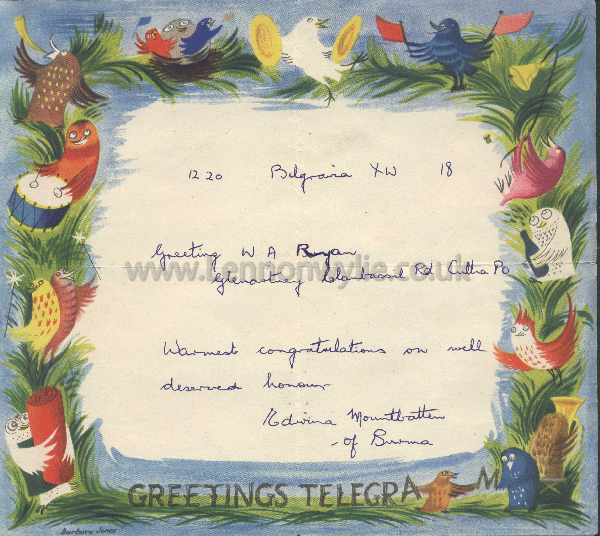 12 20 Belgravia XW 18
Greeting W A Ryan
www.lennonwylie.co.uk
Glenartney Rd Cultra Po
Warmest congratulations on well
deserved honour
Edwina Mountbatten
- of Burma
GREETINGS TELEGRAM
Barbara Jones